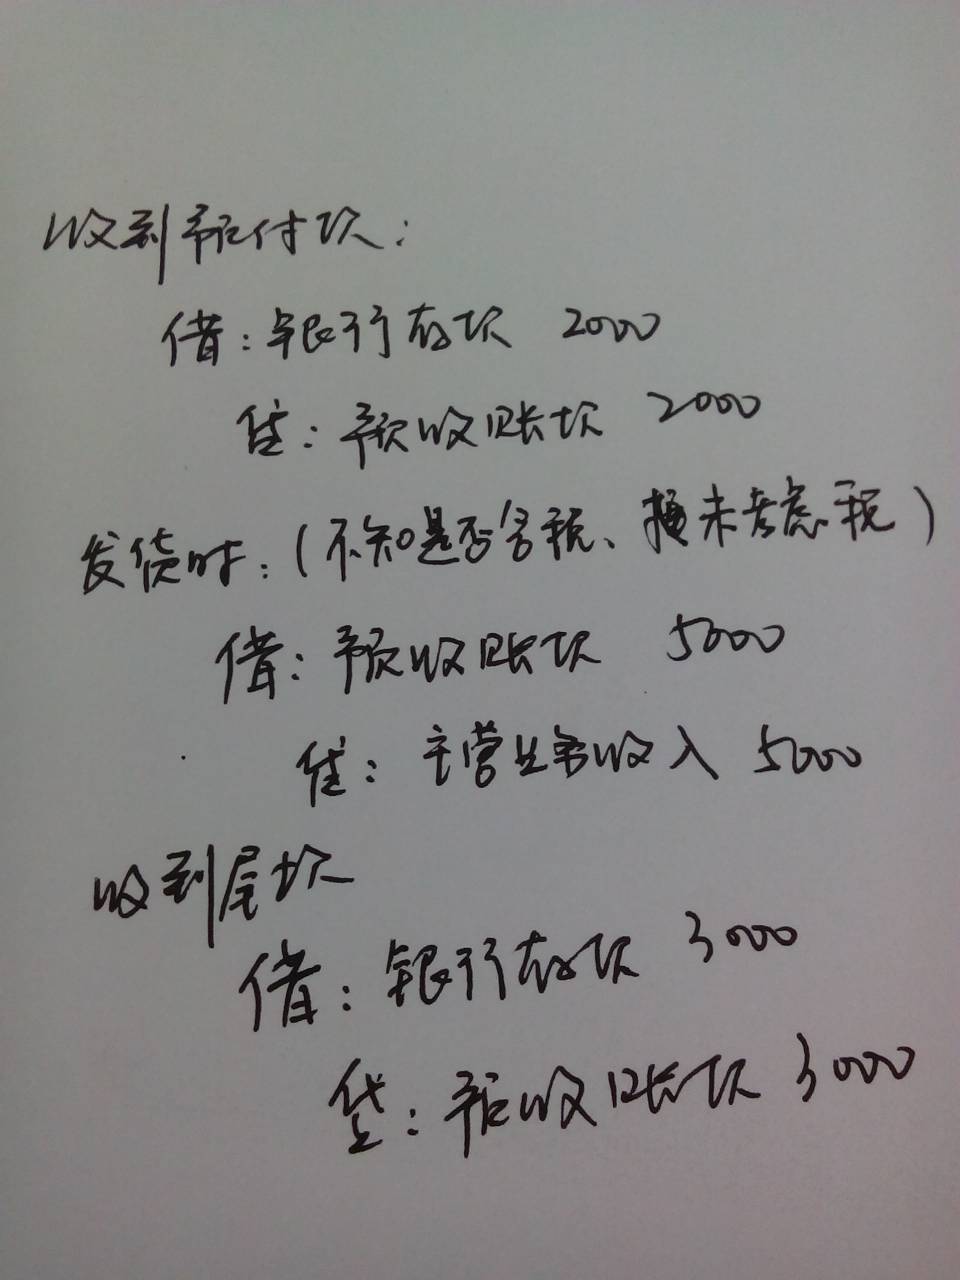 收到预付款：
借：银行存款 2000
贷：预收账款 2000
发货时：（不知是否含税、故未考虑税）
借：预收账款 5000
贷：主营业务收入 5000
收到尾款
借：银行存款 3000
贷：预收账款 3000